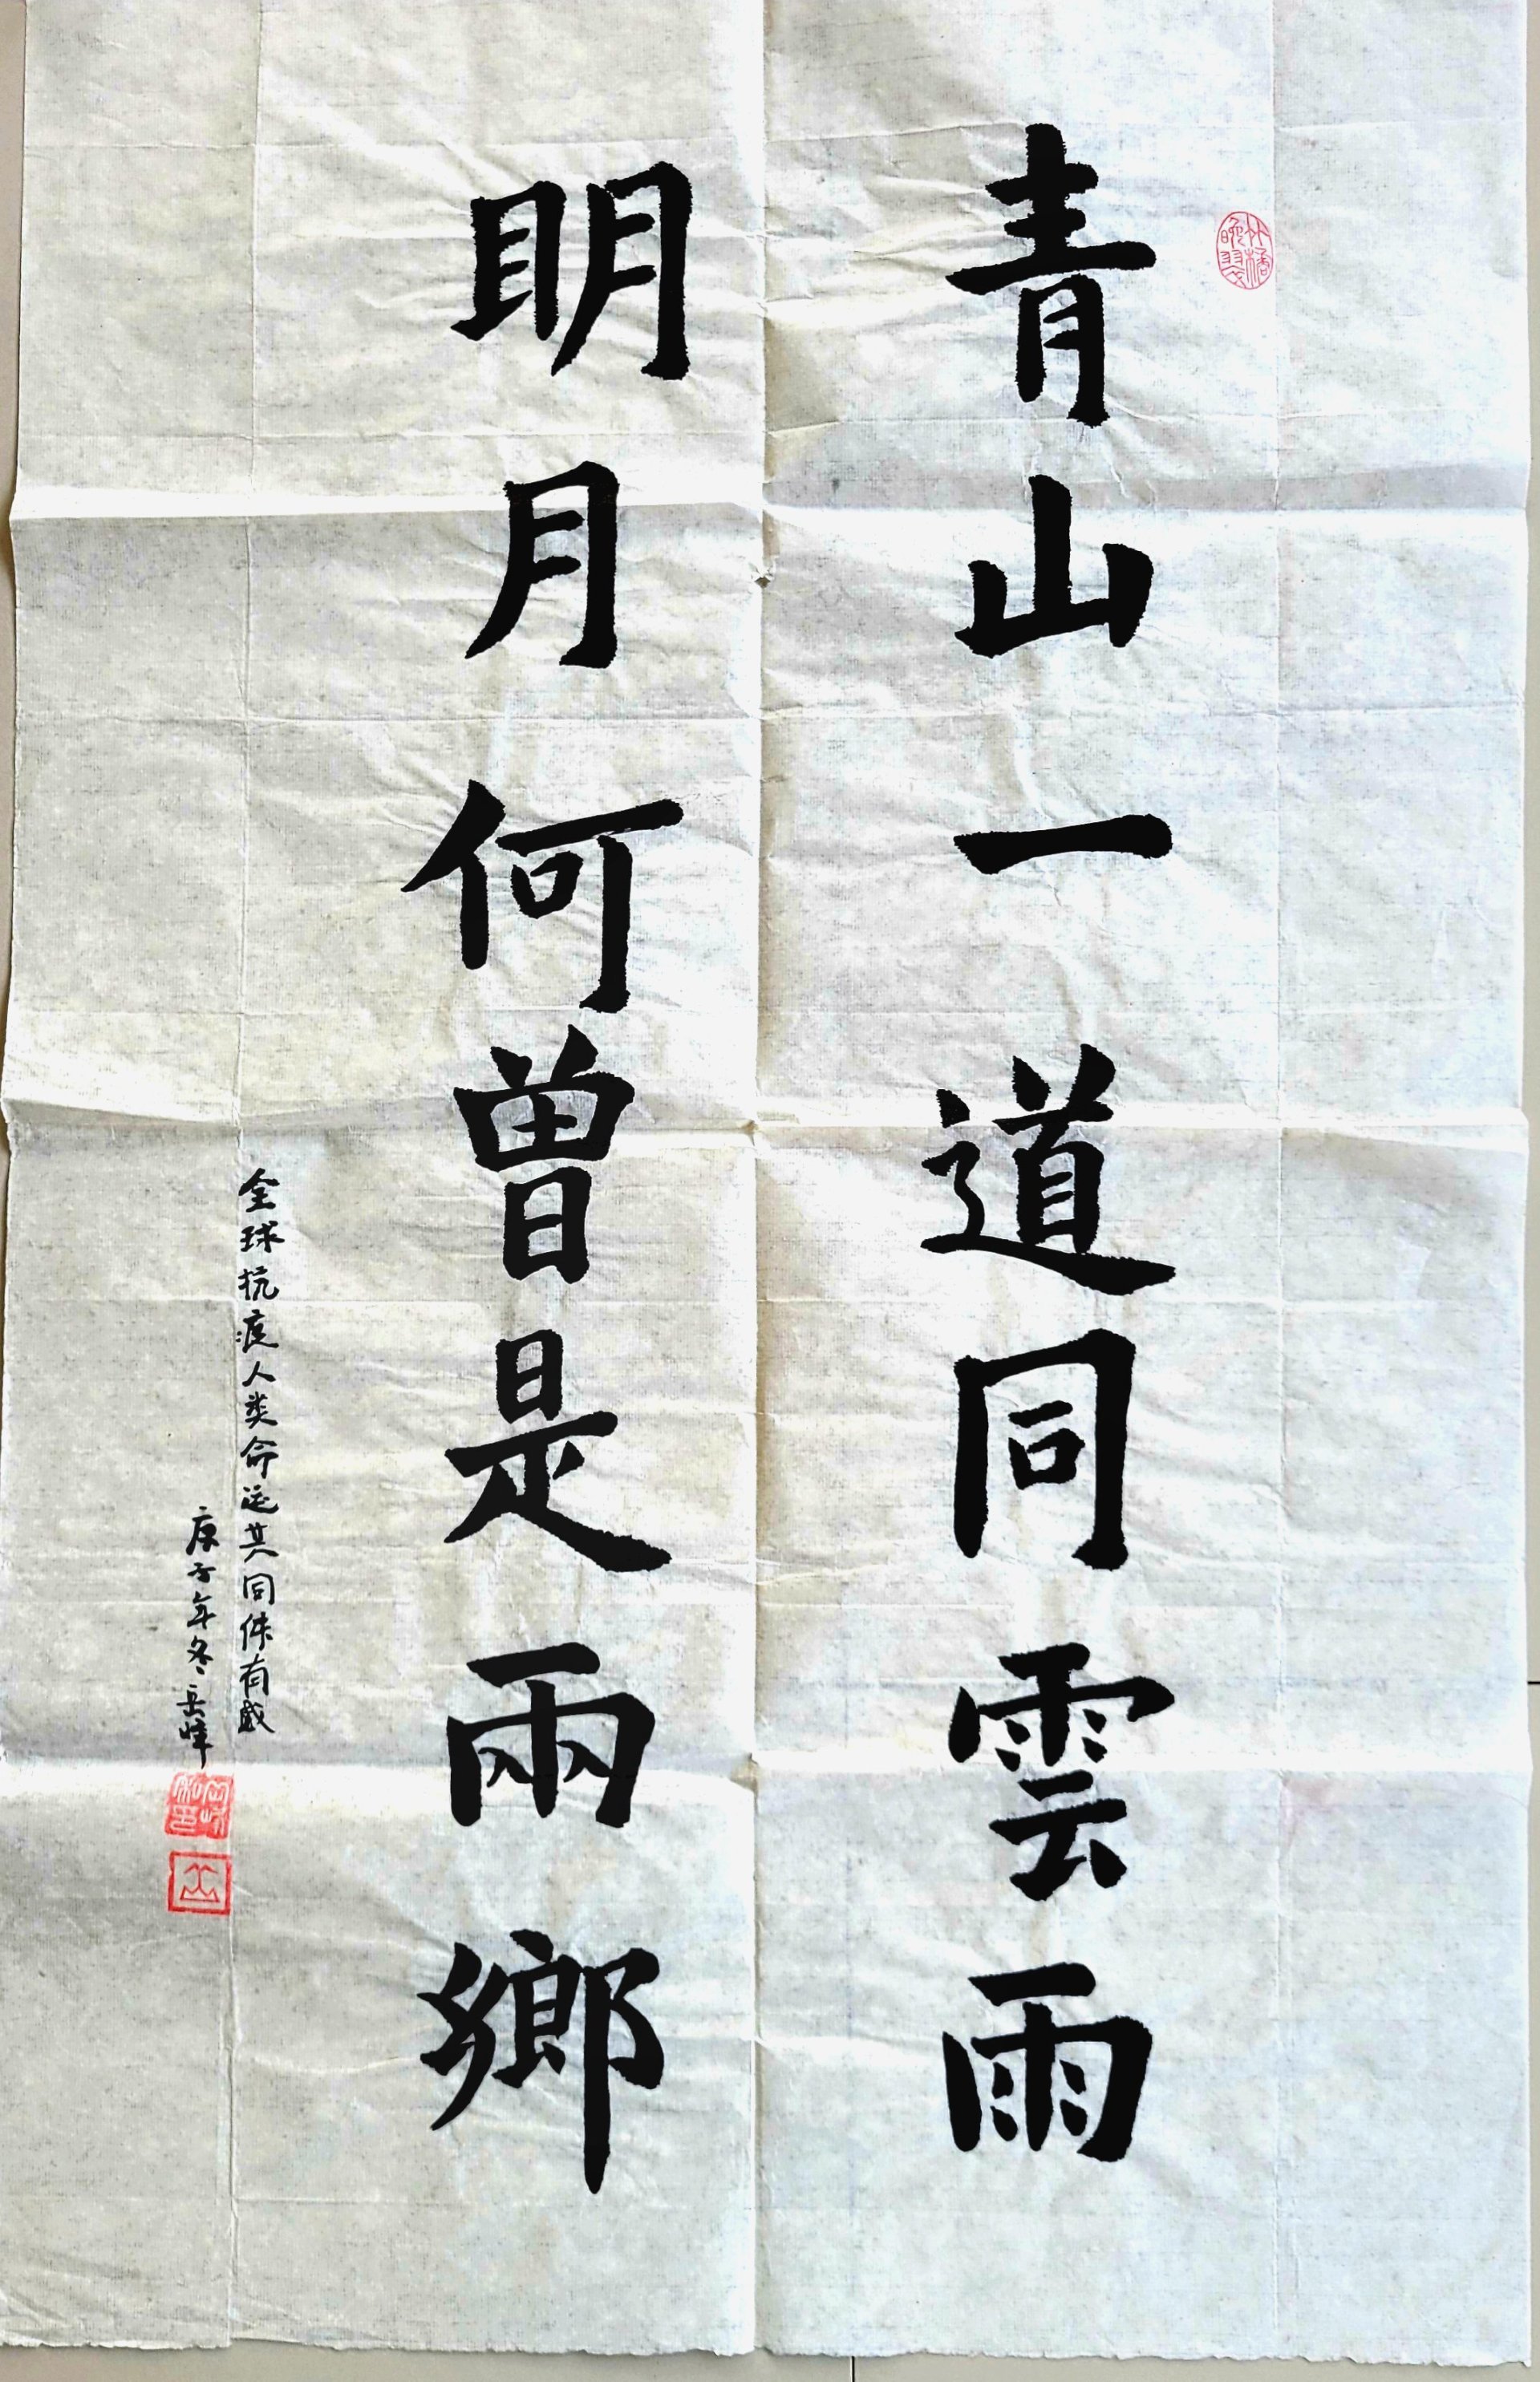 青山一道同雲雨
明月何曾是兩鄉
全球抗疫人类命运共同体有感
庚子年冬岳峰